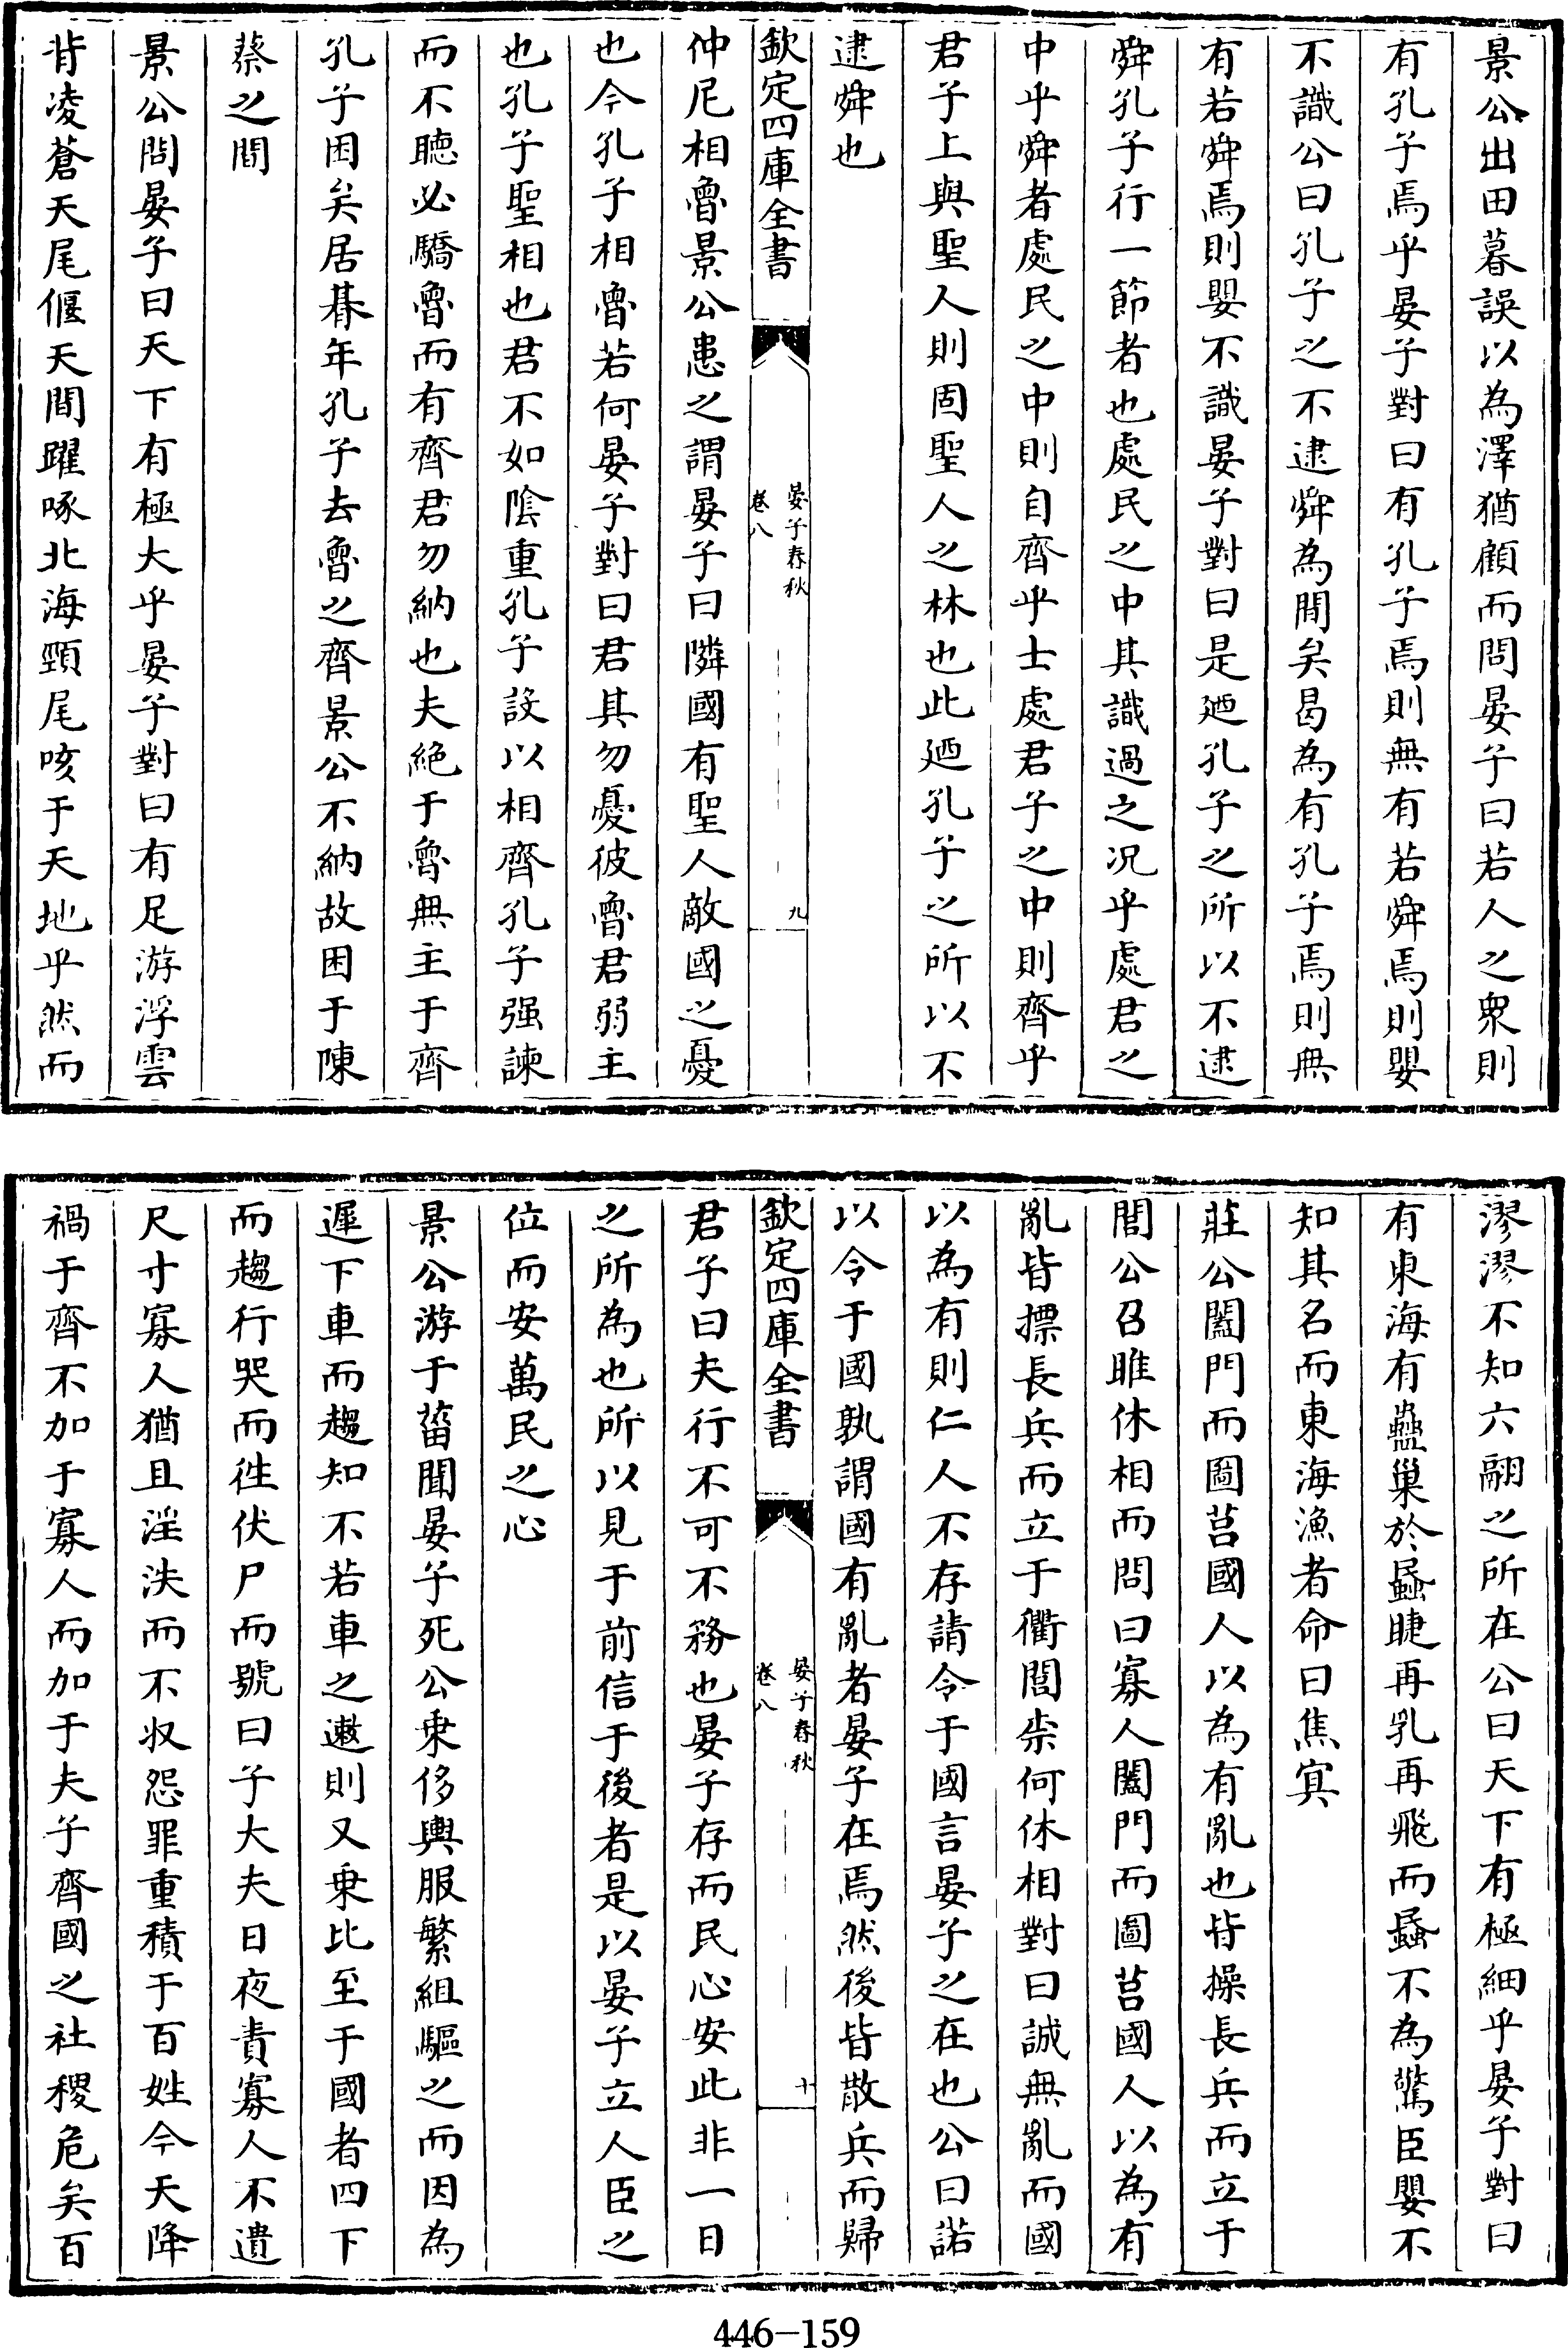 景公出田暮誤以為澤猶顧而問晏子曰若人之衆則
有孔子焉乎晏子對曰有孔子焉則無有若舜焉則嬰
不識公曰孔子之不逮舜為閒矣曷為有孔子焉則無
有若舜焉則嬰不識晏子對曰是廼孔子之所以不逮
舜孔子行一節者也處民之中其識過之况乎處君之
中乎舜者處民之中則自齊乎士處君子之中則齊乎
君子上與聖人則固聖人之林也此廼孔子之所以不
逮舜也
欽定四庫全書
晏子春秋
卷八
九
仲尼相魯景公患之謂晏子曰隣國有聖人敵國之憂
也今孔子相魯若何晏子對曰君其勿憂彼魯君弱主
也孔子聖相也君不如陰重孔子設以相齊孔子强諫
而不聽必驕魯而有齊君勿納也夫絶于魯無主于齊
孔子困矣居朞年孔子去魯之齊景公不納故困于陳
蔡之間
景公問晏子曰天下有極大乎晏子對曰有足游浮雲
背凌蒼天尾偃天間躍啄北海頸尾咳于天地乎然而
漻漻不知六翮之所在公曰天下有極細乎晏子對曰
有東海有蠱巢於蟁睫再乳再飛而蟁不為驚臣嬰不
知其名而東海漁者命曰焦㝠
莊公闔門而圖莒國人以為有亂也皆操長兵而立于
閭公召睢休相而問曰寡人闔門而圖莒國人以為有
亂皆摽長兵而立于衢閭柰何休相對曰誠無亂而國
以為有則仁人不存請令于國言晏子之在也公曰諾
以令于國孰謂國有亂者晏子在焉然後皆散兵而歸
欽定四庫全書
晏子春秋
卷八
十
君子曰夫行不可不務也晏子存而民心安此非一日
之所為也所以見于前信于後者是以晏子立人臣之
位而安萬民之心
景公游于菑聞晏子死公乗侈輿服繁組驅之而因為
遲下車而趨知不若車之遬則又乗比至于國者四下
而趨行哭而徃伏尸而號曰子大夫日夜責寡人不遺
尺寸寡人猶且淫泆而不収怨罪重積于百姓今天降
禍于齊不加于寡人而加于夫子齊國之社稷危矣百
446-159